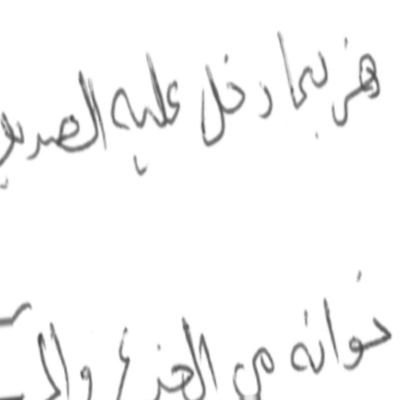 فربما دخل عليه الصديق
خوانه من الجذع وال